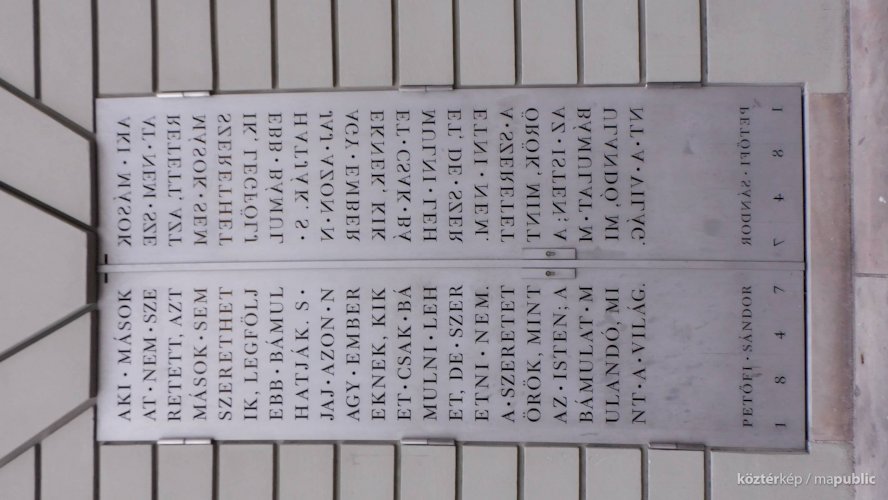 AKI · MÁSOK
AT · NEM · SZE
RETETT, AZT
MÁSOK · SEM
SZERETHET
IK, LEGFÖLJ
EBB · BÁMUL
HATJÁK. S ·
JAJ · AZON · N
AGY · EMBER
EKNEK, KIK
ET · CSAK · BÁ
MULNI · LEH
ET, DE · SZER
ETNI · NEM.
A · SZERETET
ÖRÖK, MINT
AZ · ISTEN; A
BÁMULAT · M
ULANDÓ, MI
NT · A · VILÁG.
PETŐFI · SÁNDOR
1 8 4 7
AKI · MÁSOK
AT · NEM · SZE
RETETT, AZT
MÁSOK · SEM
SZERETHET
IK, LEGFÖLJ
EBB · BÁMUL
HATJÁK. S ·
JAJ · AZON · N
AGY · EMBER
EKNEK, KIK
ET · CSAK · BÁ
MULNI · LEH
ET, DE · SZER
ETNI · NEM.
A · SZERETET
ÖRÖK, MINT
AZ · ISTEN; A
BÁMULAT · M
ULANDÓ, MI
NT · A · VILÁG.
PETŐFI · SÁNDOR
1 8 4 7
köztérkép / mapublic